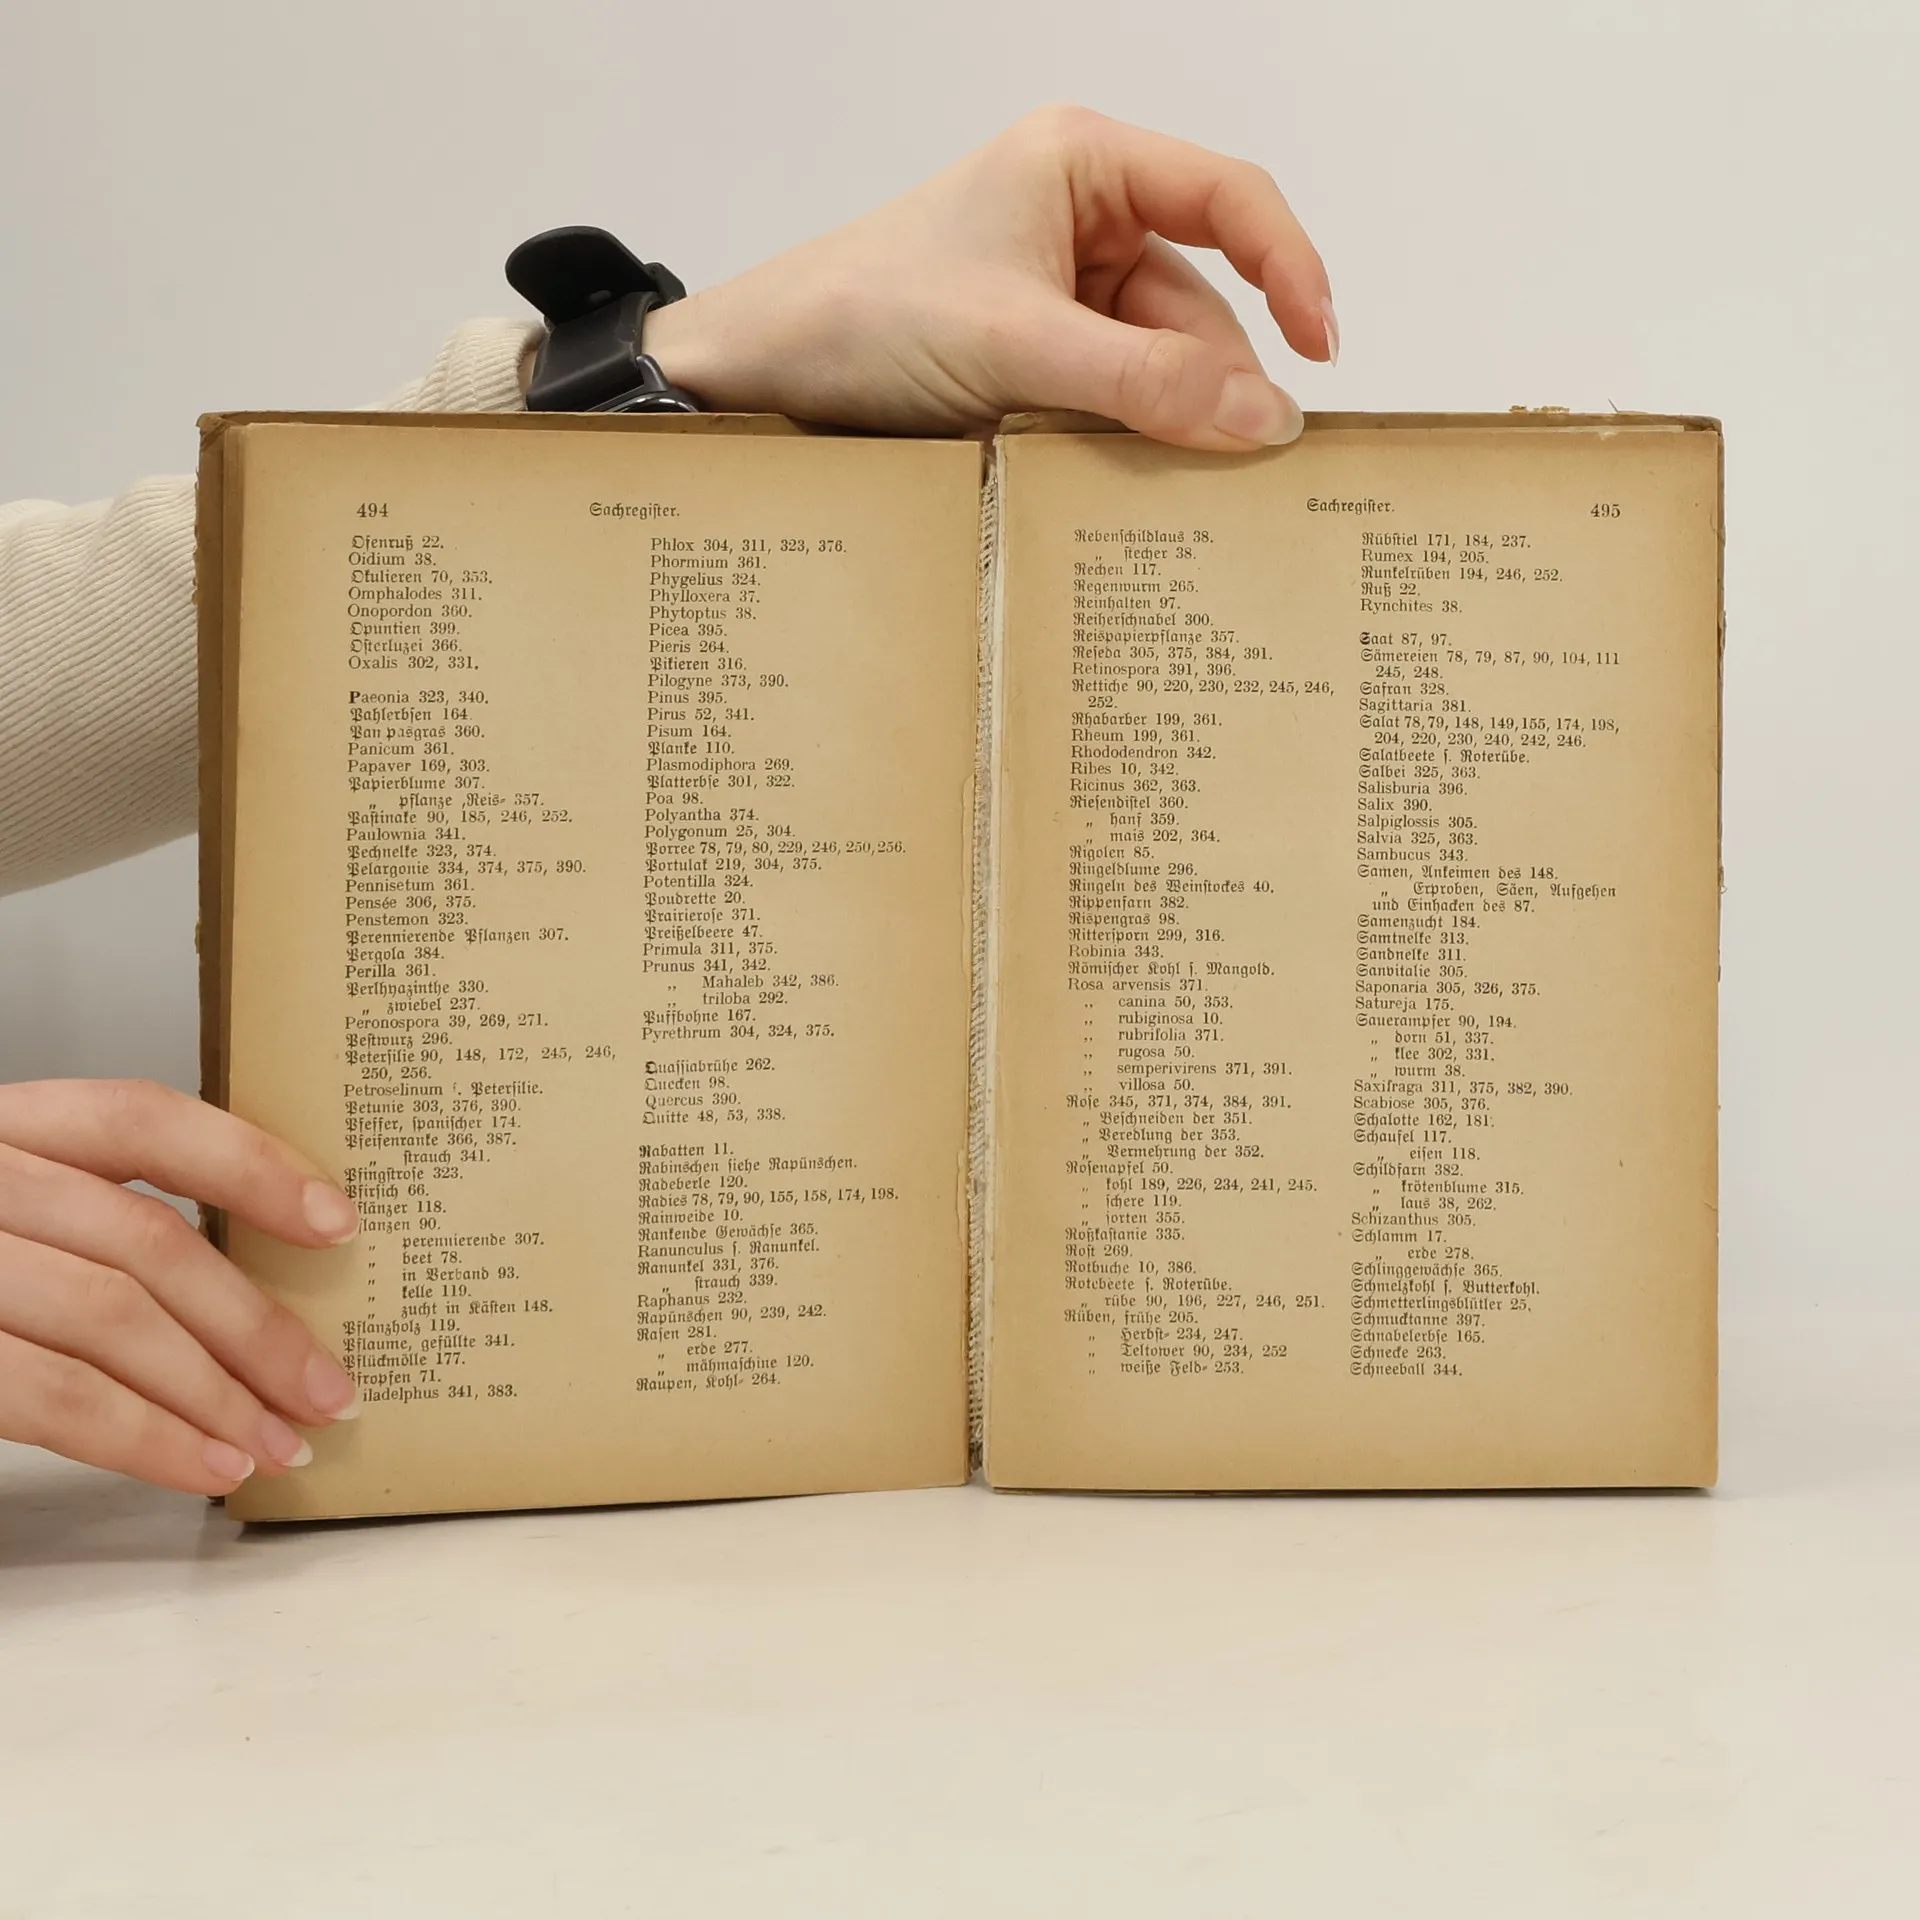 494
Sachregister.
Ofenruß 22.
Oidium 38.
Okulieren 70, 353.
Omphalodes 311.
Onopordon 360.
Opuntien 399.
Osterluzei 366.
Oxalis 302, 331.
Paeonia 323, 340.
Pahlerbsen 164.
Pan pasgras 360.
Panicum 361.
Papaver 169, 303.
Papierblume 307.
„ pflanze ,Reis- 357.
Pastinake 90, 185, 246, 252.
Paulownia 341.
Pechnelke 323, 374.
Pelargonie 334, 374, 375, 390.
Pennisetum 361.
Pensée 306, 375.
Penstemon 323.
Perennierende Pflanzen 307.
Pergola 384.
Perilla 361.
Perlhyazinthe 330.
„ zwiebel 237.
Peronospora 39, 269, 271.
Pestwurz 296.
Petersilie 90, 148, 172, 245, 246,
250, 256.
Petroselinum s. Petersilie.
Petunie 303, 376, 390.
Pfeffer, spanischer 174.
Pfeifenranke 366, 387.
„ strauch 341.
Pfingstrose 323.
Pfirsich 66.
flänzer 118.
flanzen 90.
„ perennierende 307.
„ beet 78.
„ in Verband 93.
„ kelle 119.
„ zucht in Kästen 148.
Pflanzholz 119.
Pflaume, gefüllte 341.
Pflückmölle 177.
Pfropfen 71.
iladelphus 341, 383.
Phlox 304, 311, 323, 376.
Phormium 361.
Phygelius 324.
Phylloxera 37.
Phytoptus 38.
Picea 395.
Pieris 264.
Pikieren 316.
Pilogyne 373, 390.
Pinus 395.
Pirus 52, 341.
Pisum 164.
Planke 110.
Plasmodiphora 269.
Platterbse 301, 322.
Poa 98.
Polyantha 374.
Polygonum 25, 304.
Porree 78, 79, 80, 229, 246, 250, 256.
Portulak 219, 304, 375.
Potentilla 324.
Poudrette 20.
Prairierose 371.
Preißelbeere 47.
Primula 311, 375.
Prunus 341, 342.
„ Mahaleb 342, 386.
„ triloba 292.
Puffbohne 167.
Pyrethrum 304, 324, 375.
Quassiabrühe 262.
Quecken 98.
Quercus 390.
Quitte 48, 53, 338.
Rabatten 11.
Rabinschen siehe Rapünschen.
Radeberle 120.
Radies 78, 79, 90, 155, 158, 174, 198.
Rainweide 10.
Rankende Gewächse 365.
Ranunculus s. Ranunkel.
Ranunkel 331, 376.
„ strauch 339.
Raphanus 232.
Rapünschen 90, 239, 242.
Rasen 281.
„ erde 277.
„ mähmaschine 120.
Raupen, Kohl- 264.
Sachregister.
495
Rebenschildlaus 38.
„ stecher 38.
Rechen 117.
Regenwurm 265.
Reinhalten 97.
Reiherschnabel 300.
Reispapierpflanze 357.
Reseda 305, 375, 384, 391.
Retinospora 391, 396.
Rettiche 90, 220, 230, 232, 245, 246,
252.
Rhabarber 199, 361.
Rheum 199, 361.
Rhododendron 342.
Ribes 10, 342.
Ricinus 362, 363.
Riesendistel 360.
„ hanf 359.
„ mais 202, 364.
Rigolen 85.
Ringeldlume 296.
Ringeln des Weinstockes 40.
Rippenfarn 382.
Rispengras 98.
Rittersporn 299, 316.
Robinia 343.
Römischer Kohl s. Mangold.
Rosa arvensis 371.
„ canina 50, 353.
„ rubiginosa 10.
„ rubrifolia 371.
„ rugosa 50.
„ semperivirens 371, 391.
„ villosa 50.
Rose 345, 371, 374, 384, 391.
„ Beschneiden der 351.
„ Veredlung der 353.
„ Vermehrung der 352.
Rosenapfel 50.
„ kohl 189, 226, 234, 241, 245.
„ schere 119.
„ sorten 355.
Roßkastanie 335.
Rost 269.
Rotbuche 10, 386.
Rotebeete s. Roterübe.
„ rübe 90, 196, 227, 246, 251.
Rüben, frühe 205.
„ Herbst- 234, 247.
„ Teltower 90, 234, 252
„ weiße Feld- 253.
Rübstiel 171, 184, 237.
Rumex 194, 205.
Runkelrüben 194, 246, 252.
Ruß 22.
Rynchites 38.
Saat 87, 97.
Sämereien 78, 79, 87, 90, 104, 111
245, 248.
Safran 328.
Sagittaria 381.
Salat 78, 79, 148, 149, 155, 174, 198,
204, 220, 230, 240, 242, 246.
Salatbeete s. Roterübe.
Salbei 325, 363.
Salisburia 396.
Salix 390.
Salpiglossis 305.
Salvia 325, 363.
Sambucus 343.
Samen, Ankeimen des 148.
„ Erproben, Säen, Aufgehen
und Einhacken des 87.
Samenzucht 184.
Samtnelke 313.
Sandnelke 311.
Sanvitalie 305.
Saponaria 305, 326, 375.
Satureja 175.
Sauerampfer 90, 194.
„ dorn 51, 337.
„ klee 302, 331.
„ wurm 38.
Saxifraga 311, 375, 382, 390.
Scabiose 305, 376.
Schalotte 162, 181.
Schaufel 117.
„ eisen 118.
Schildfarn 382.
„ krötenblume 315.
„ laus 38, 262.
Schizanthus 305.
Schlamm 17.
„ erde 278.
Schlinggewächse 365.
Schmelzkohl s. Butterkohl.
Schmetterlingsblütler 25.
Schmucktanne 397.
Schnabelerbse 165.
Schnecke 263.
Schneeball 344.